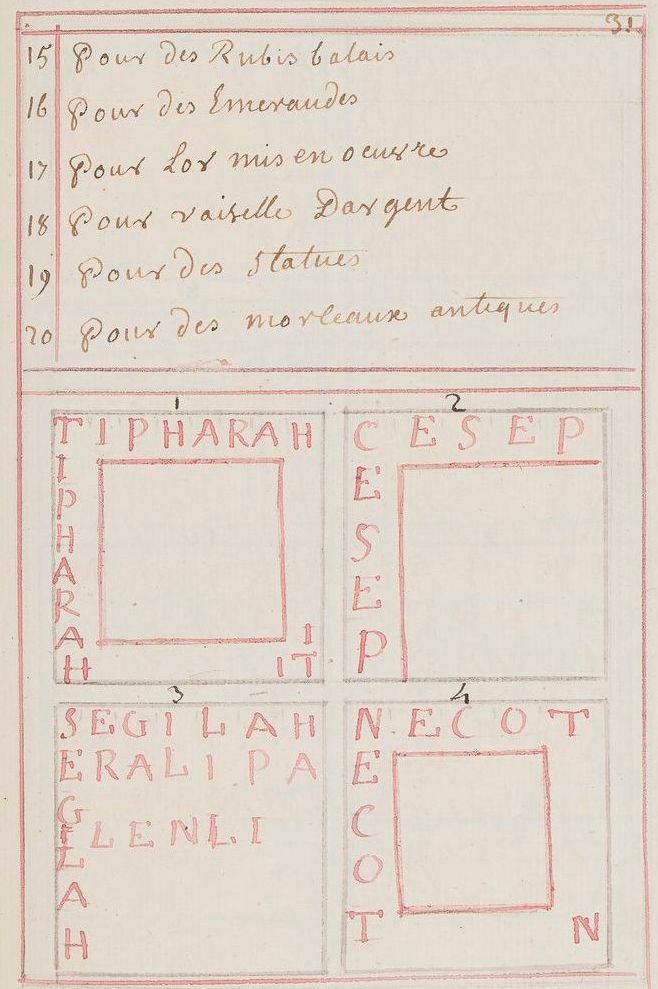 31
15 Pour des Rubis balais
16 Pour des Emeraudes
17 Pour Lor mis en oeuvre
18 Pour vaiselle Dargent
19 Pour des Statues
20 Pour des morceaux antiques
1
TIPHARAH
I
P
H
A
R
A I
H IT
2
CESEP
E
S
E
P
3
SEGILAH
ERALIPA
G
LENLI
L
A
H
4
NECOT
E
C
O
T N